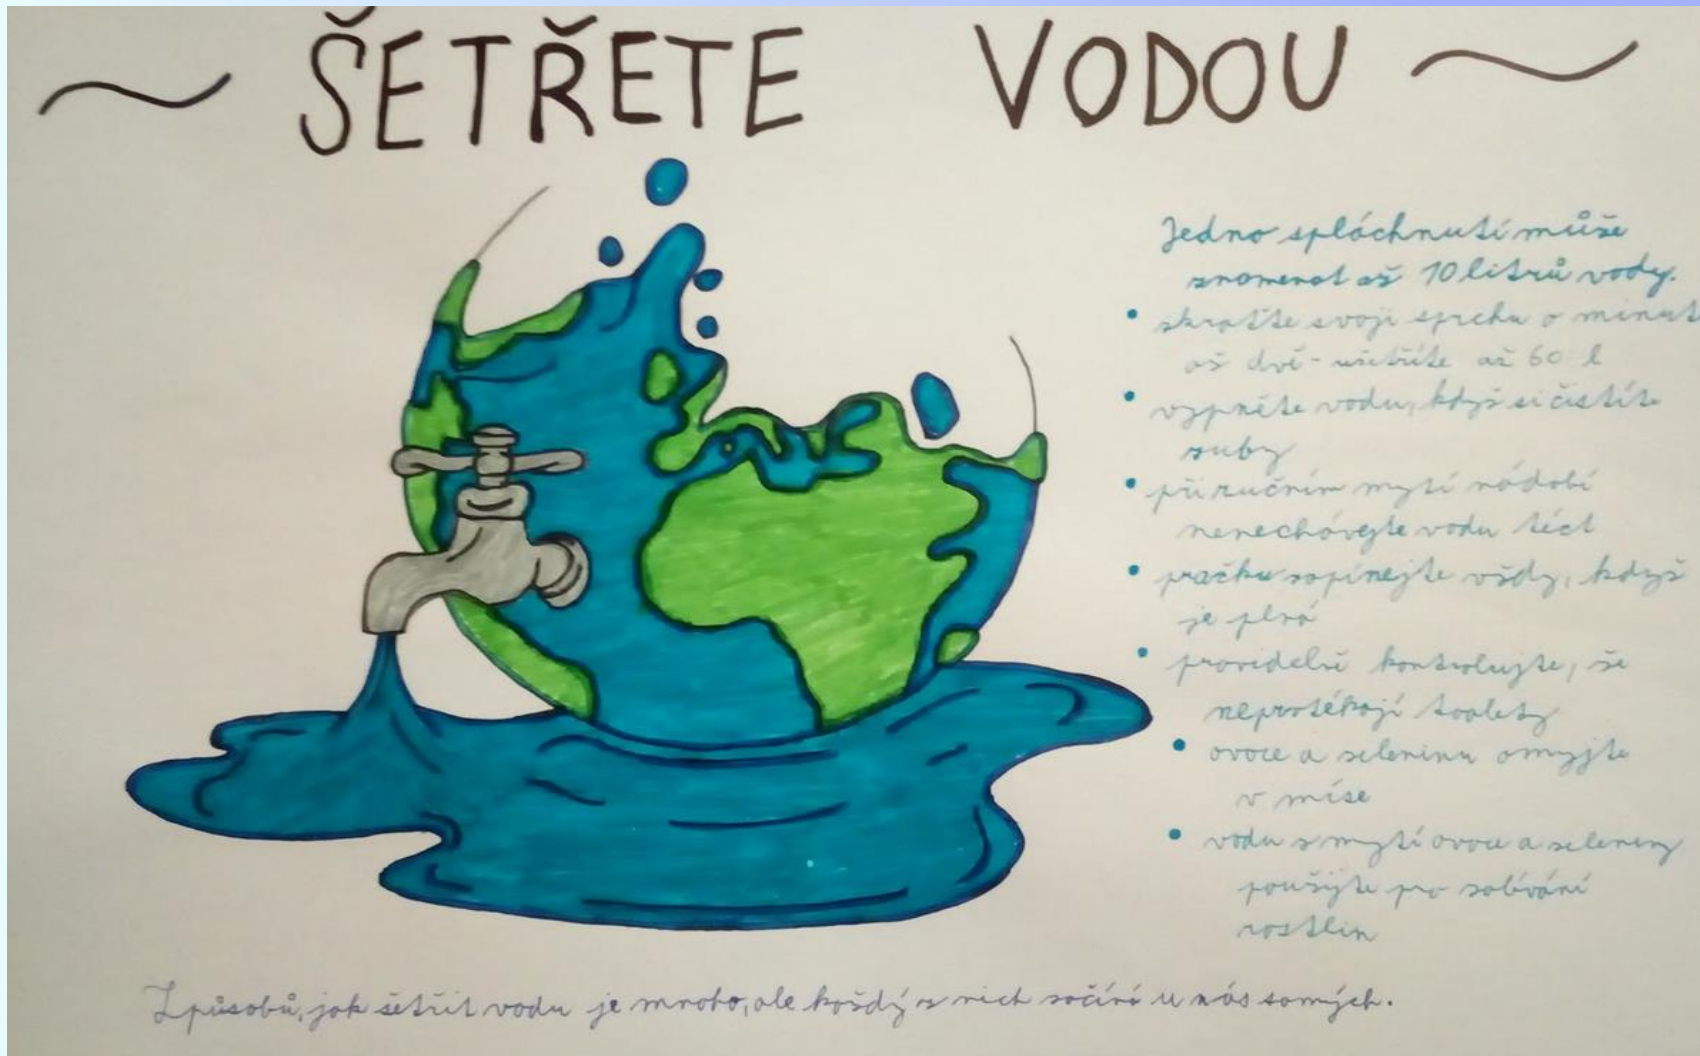 ~ ŠETŘETE VODOU ~
Jedno spláchnutí může
znamenat až 10 litrů vody.
• zkraťte svoji sprchu o minut
až dvě - ušetříte až 60 l
• vypněte vodu, když si čistíte
zuby
• při ručním mytí nádobí
nenechávejte vodu téct
• pračku zapínejte vždy, když
je plná
• pravidelně kontrolujte, že
neprotékají toalety
• ovoce a zeleninu omyjte
v míse
• vodu z mytí ovoce a zeleniny
použijte pro zalívání
rostlin
Způsobů, jak šetřit vodu je mnoho, ale každý z nich začíná u nás samých.